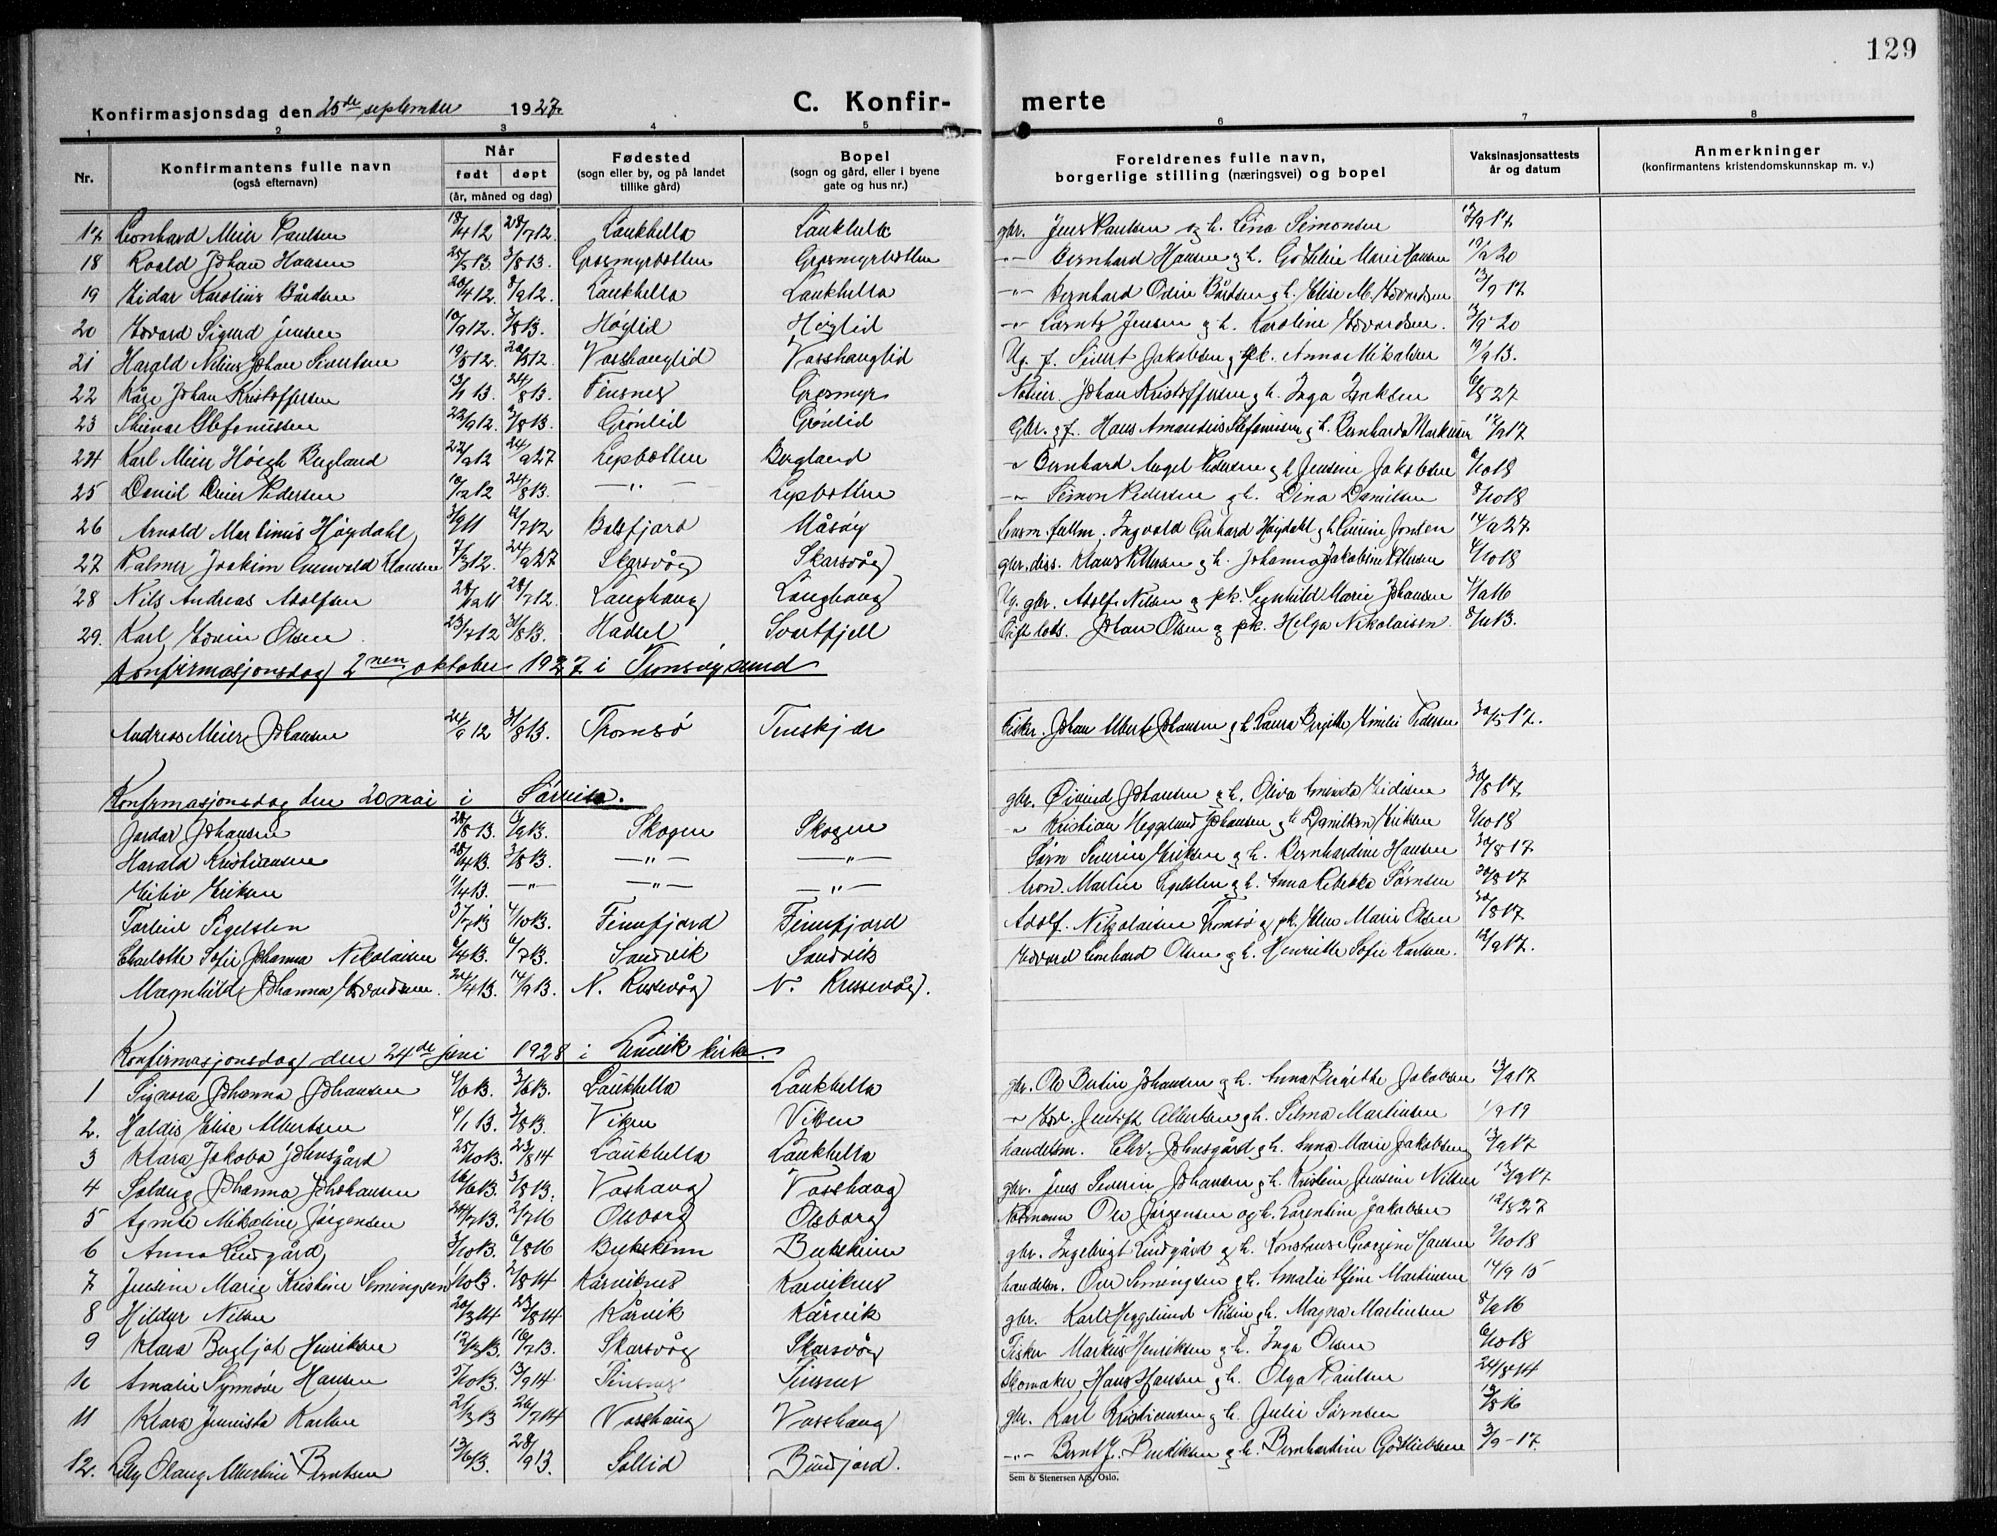 129
Konfirmasjonsdag den 25de september 1927.
C. Konfir- merte
1 2 3 4 5 6 7 8
Nr.
Konfirmantens fulle navn
(også efternavn)
Når
født døpt
(år, måned og dag)
Fødested
(sogn eller by, og på landet
tillike gård)
Bopel
(sogn og gård, eller i byene
gate og hus nr.)
Foreldrenes fulle navn,
borgerlige stilling (næringsvei) og bopel
Vaksinasjonsattests
år og datum
Anmerkninger
(konfirmantens kristendomskunnskap m. v.)
17 Leonhard Meier Paulsen 18/4 12 28/7 12. Laukhella Laukhella gbr. Jens Paulsen og h. Lina Simonsen 17/9 17.
18 Roald Johan Hansen 25/5 13. 3/8 13. Grasmyrbotten Grasmyrbotten -"- Bernhard Hansen og h. Gotteline Marie Hansen 19/9 20
19 Eidar Karolius Bårdsen 28/4 12. 8/9 12. Laukhella Laukhella -"- Bernhard Odin Bårdsen og h. Elise M. Edvardsen 13/9 17
20 Edvard Sigurd Jensen 10/9 12. 3/8 13. Høglid Høglid -"- Lorentz Jensen og h. Karoline Edvardsen. 13/9 20
21 Harald Nelius Johan Sivertsen 19/5 12. 20/5 12 Vasshauglid Vasshauglid Ug. f. Sivert Jakobsen og pk. Anna Mikalsen 19/9 13.
22 Kåre Johan Kristoffersen 13/1 13. 24/8 13. Finsnes Grasmyr Notbinder Johan Kristoffersen og h. Inga Eriksen 6/5 27
23 Steinar Stefanussen 22/9 12. 3/8 13. Grønlid Grønlid Gbr. og f. Hans Amandus Stefanussen og h. Bernharda Markussen 17/9 17
24 Karl Meier Høegh Bergland 22/9 12 24/9 27 Lysbotten Bergland -"- Bernhard Angel Pedersen og h. Jensine Jakobsen 6/10 18
25 Daniel Meier Pedersen 10/12 12 24/8 13. -"- Lysbotten -"- Simon Pedersen og h. Dina Danielsen 8/10 18
26 Arnold Martinus Høgdahl, 3/9 11 6/7 12 Balsfjord Måsøy Ingvald Gerhard Høgdahl og h. Gurine Jonsen 14/9 27
27 Palmer Joakim Gunvald Klausen 7/3 12. 24/9 27 Skarsvåg Skarsvåg gbr. diss. Klaus Pettersen og h. Johanna Jakobine Pettersen 4/10 18
28 Nils Andreas Adolfsen 28/12 11 28/7 12. Langhaug Langhaug Ug. gbr. Adolf Nilsen og pk. Signhild Marie Johansen 4/9 16
29. Karl Edvin Olsen 23/7 12 31/8 13. Hadsel Svartfjell Gift lods. Johan Olsen og pk. Helga Nikolaisen. 8/11 13.
Konfirmasjonsdag 2nen oktober 1927 i Tranøysund
Andreas Meier Johansen 24/9 12 31/8 13. Thomsø Tenskjær Fisker. Johan Albert Johansen og h. Laura Birgitte Emilie Pedersen 30/5 17.
Konfirmasjonsdag den 20 mai i Sørreisa.
gbr. Øivind Johansen og h. Oliva Eminda Eidisen 30/8 17
Jardar Johansen 28/8 13. 6/9 13. Skogen Skogen -"- Kristian Heggelund Johansen og h. Danilsen Eriksen 9/10 18
Harald Kristiansen 28/4 13. 3/8 13. -"- -"- Sørn Severin Eriksen og h. Bernhardine Hansen 30/8 17
Eiliv Eriksen 11/4 13. -"- -"- -"- Martin Sigelsten og h. Anna Rebekka Sørnsen 30/8 17
Torleif Sigelsten 31/7 13 4/10 13. Finnfjord Finnfjord Adolf. Nikolaisen Tromsø og pk. Ellen Marie Olsen 30/8 17
Charlotte Sofie Johanna Nikolaisen 6/4 13. 6/7 13. Sandvik Sandvik Edvard Leonhard Olsen og h. Henriette Sofie Karlsen. 12/9 17.
Magnhild Johanna Edvardsen. 24/4 13. 14/9 13. N. Russevåg N. Russevåg.
Konfirmasjonsdag den 24de juni 1928 i Lenvik kirke.
1 Signora Johanna Johansen 4/6 13. 3/8 13. Laukhella Laukhella gbr. Ole Bertin Johansen og h. Anna Birgitte Jakobsen 13/9 17
2. Haldis Elise Albertsen 4/1 13. 3/8 13. Viken Viken -"- Edv. Jentoft Albertsen og h. Selma Martinsen 1/9 19
3 Klara Jakoba Johnsgård 25/10 13. 23/8 14 Laukhella Laukhella handelsm. Chr. Johnsgård og h. Anna Marie Jakobsen 13/9 17
4 Solaug Johanna Johansen 16/6 13. 3/8 13. Vasshaug Vasshaug gbr. Jens Severin Johansen og h. Kristine Jensine Nilsen 13/9 17
5 Agnete Mikaline Jørgensen 24/7 13. 2/7 16 Olsborg Olsborg Ole Jørgensen og h. Lorentine Jakobsen 12/8 27
6 Anna Lindgård, 3/10 13. 6/8 16 Bukskinn Bukskinn gbr. Ingebrigt Lindgård og h. Konstanse Georgine Hansen 9/10 18
7 Jensine Marie Kristine Semingsen 1/10 13. 2/8 14 Kårviknes Kårviknes handelsm. Ove Semingsen og h. Amalie Martinsen 14/9 15
8 Hildur Nilsen 20/3 14 23/8 14 Kårvik Kårvik gbr. Karl Heggelund Nilsen og h. Magna Martinsen 8/9 16
9 Klara Bergljot Henriksen 12/3 13. 16/7 13. Skarsvåg Skarsvåg Fisker Markus Henriksen og h. Inga Olsen 6/10 18
10 Amalie Synnøve Hansen 5/10 13. 13/9 14 Finsnes Finsnes Skomaker Hans Hansen og h. Olga Paulsen 24/8 14
11 Klara Jennista Karlsen 21/3 13 26/7 14 Vasshaug Vasshaug gbr. Karl Kristiansen og h. Julie Sørnsen 19/8 16
12. Lilly Olaug Albertine Berntsen 13/6 13. 28/9 13. Sollid Bundjord. -"- Bernt J. Bendiksen og h. Bernhardine Gottliebsen 3/9-17.
Sem & Stenersen A/S, Oslo.